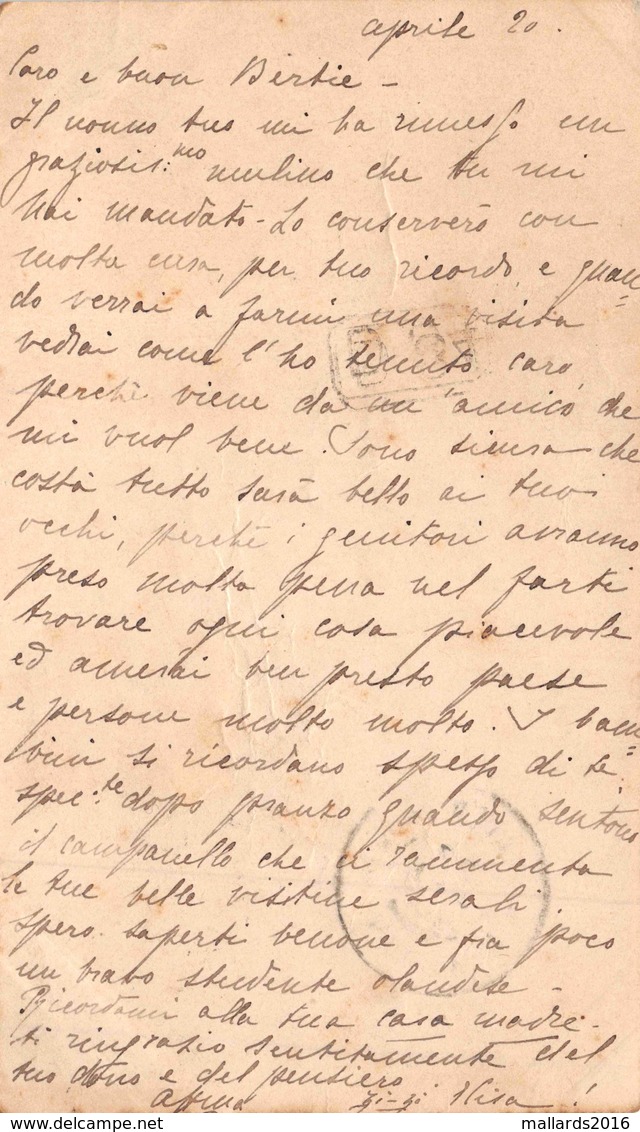 aprile 20.
Caro e buon Bertie -
Il nonno tuo mi ha rimesso un
graziosis:mo mulino che tu mi
hai mandato - Lo conserverò con
molta cura, per tuo ricordo e quan=
do verrai a farmi una visita
vedrai come l'ho tenuto caro,
perchè viene da un'amico, che
mi vuol bene. Sono sicura che
costà tutto sarà bello ai tuoi
occhi, perchè i genitori avranno
preso molta pena nel farti
trovare ogni cosa piacevole
ed amerai ben presto paese
e persone molto molto. I bam=
bini si ricordano spesso di te,
spec:te dopo pranzo quando sentono
il campanello che ci rammenta
le tue belle visitine serali.
Spero saperti benone e fra poco
un bravo studente olandese -
Ricordami alla tua cara madre -
ti ringrazio sentitamente del
tuo dono e del pensiero.
Elisa!
mallards2016
© www.delcampe.net